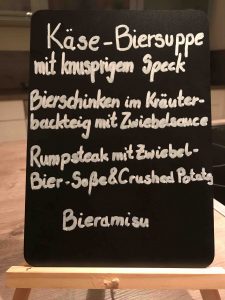 Käse-Biersuppe
mit knusprigem Speck
Bierschinken im Kräuter-
backteig mit Zwiebelsauce
Rumpsteak mit Zwiebel-
Bier-Soße & Crushed Potato
Bieramisu